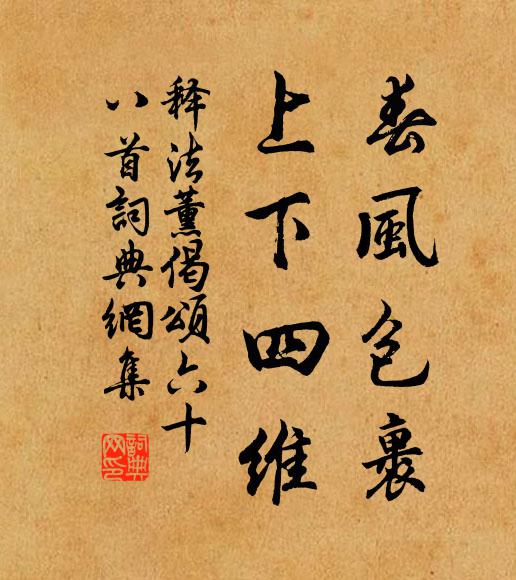 春風包裹
上下四維
释法薰偈頌六十
八首詞典網集
詞典網印